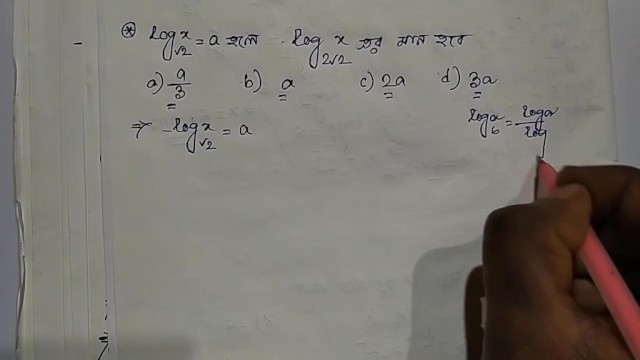 * log_√2 x = a হলে log_2√2 x এর মান হবে
a) a/3 b) a c) 2a d) 3a
⇒ log_√2 x = a
log_b a = log a / log